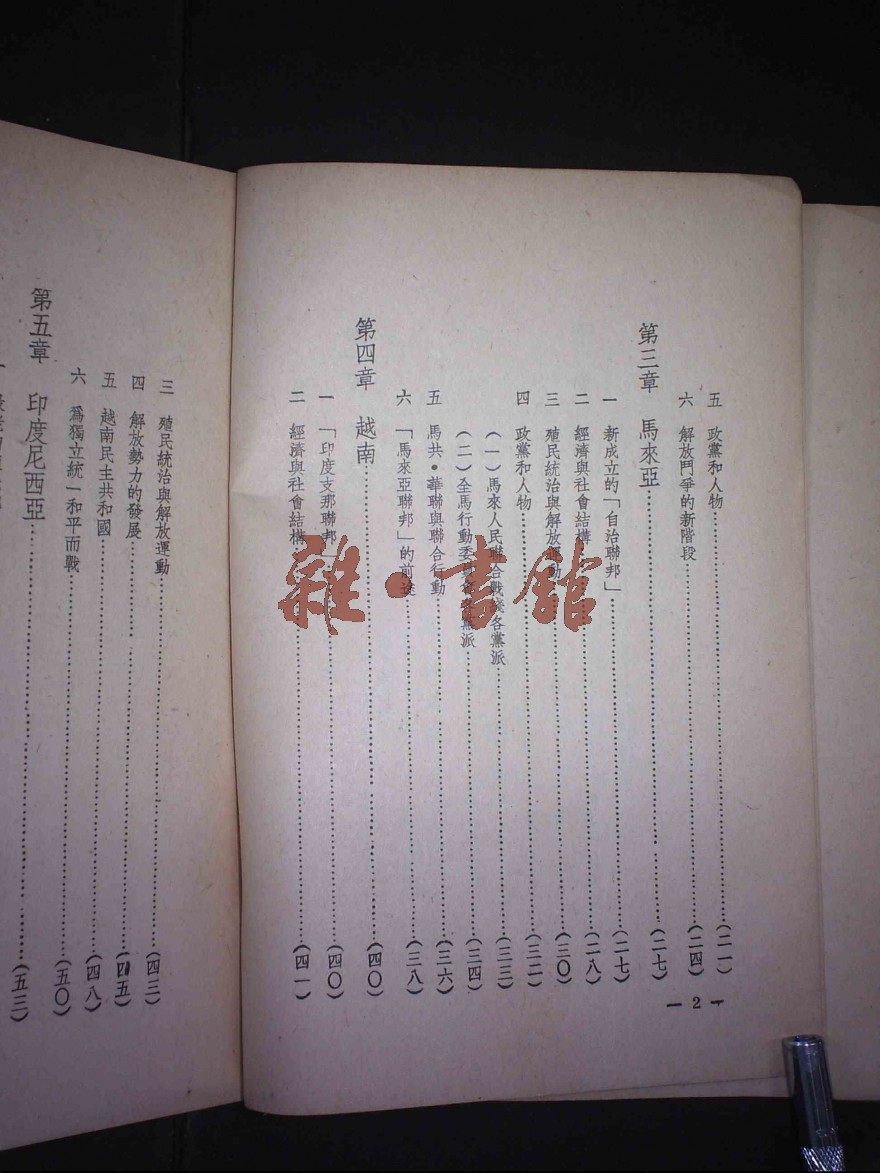 五 政黨和人物……(二一)
六 解放鬥爭的新階段……(二四)
第三章 馬來亞……(二七)
一 新成立的「自治聯邦」……(二七)
二 經濟與社會結構……(二八)
三 殖民統治與解放運動……(三〇)
四 政黨和人物……(三二)
(一)馬來人民聯合戰線各黨派……(三三)
(二)全馬行動委員會各黨派……(三四)
五 馬共・華聯與聯合行動……(三六)
六 「馬來亞聯邦」的前途……(三八)
第四章 越南……(四〇)
一 「印度支那聯邦」……(四〇)
二 經濟與社會結構……(四一)
— 2 —
三 殖民統治與解放運動……(四三)
四 解放勢力的發展……(四五)
五 越南民主共和國……(四八)
六 爲獨立統一和平而戰……(五〇)
第五章 印度尼西亞……(五三)
雜・書舘